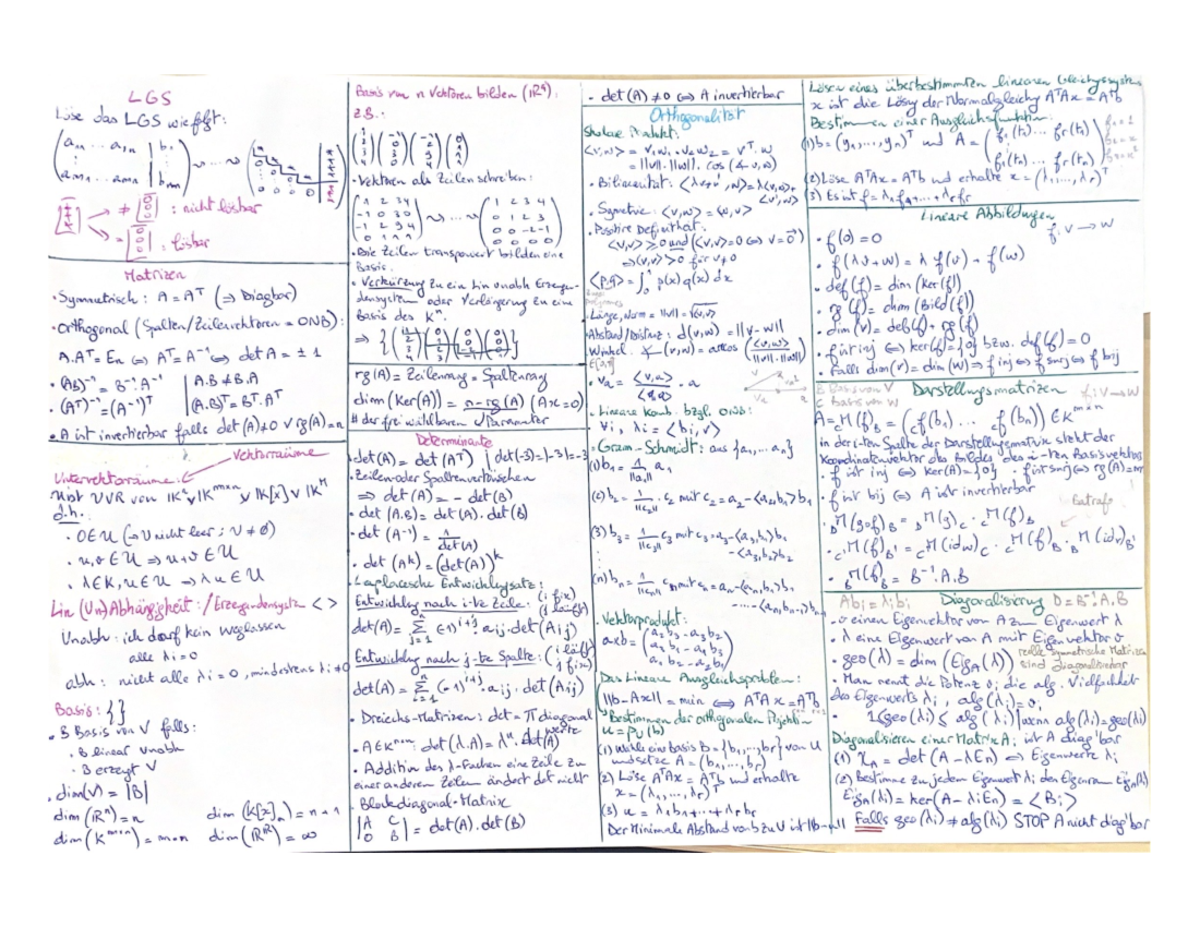 LGS
Löse das LGS wie folgt:
: nicht lösbar
: lösbar
Matrizen
• Symmetrisch: A = Aᵀ (⇒ Diagbar)
• Orthogonal (Spalten/Zeilenvektoren = ONB):
A.Aᵀ = En ⇔ Aᵀ = A⁻¹ ⇔ det A = ± 1
• (AB)⁻¹ = B⁻¹.A⁻¹ | A.B ≠ B.A
• (Aᵀ)⁻¹ = (A⁻¹)ᵀ | (A.B)ᵀ = Bᵀ.Aᵀ
• A ist invertierbar falls det(A) ≠ 0 ∨ rg(A) = n
Vektorräume
Untervektorräume:
U ist UVR von
d.h.:
• 0 ∈ U (→ U nicht leer ; U ≠ ∅)
• u, v ∈ U ⇒ u + v ∈ U
• λ ∈ K, u ∈ U ⇒ λu ∈ U
Lin (Un)Abhängigkeit: / Erzeugendensystem < >
Unabh: ich darf kein weglassen
alle λi = 0
abh: nicht alle λi = 0, mindestens λi ≠ 0
Basis: { }
• B Basis von V falls:
• B linear unabh
• B erzeugt V
• dim(V) = |B|
dim(ℝⁿ) = n dim(K[x]ₙ) = n + 1
dim(Kᵐˣⁿ) = m·n dim(ℝ^ℝ) = ∞
Basis von n Vektoren bilden (ℝ⁴):
z.B.:
• Vektoren als Zeilen schreiben:
( 1 2 3 4 / -1 0 3 0 / -1 2 9 4 / 0 1 1 1 ) ⇝ ... ⇝ ( 1 2 3 4 / 0 1 2 3 / 0 0 -2 -1 / 0 0 0 0 )
• Die Zeilen transponiert bilden eine
Basis.
• Verkürzung zu ein Lin unabh Erzeugen-
densystem oder Verlängerung zu eine
Basis des Kⁿ.
rg(A) = Zeilenrang = Spaltenrang
dim(Ker(A)) = n - rg(A) (Ax = 0)
# der frei wählbaren Parameter
Determinante
• det(A) = det(Aᵀ) | det(-3) = |-3| = -3
• Zeilen oder Spaltenvertauschen
⇒ det(A) = - det(B)
• det(A.B) = det(A).det(B)
• det(A⁻¹) = 1/det(A)
• det(Aᵏ) = (det(A))ᵏ
• Laplacesche Entwicklungsatz:
Entwicklung nach i-te Zeile: (i fix) (j läuft)
det(A) = Σ (-1)ⁱ⁺ʲ . aij . det(Aij)
j=1
Entwicklung nach j-te Spalte: (i läuft) (j fix)
det(A) = Σ (-1)ⁱ⁺ʲ . aij . det(Aij)
i=1
• Dreiecks-Matrizen: det = π diagonal werte
• A ∈ Kⁿˣⁿ: det(λ.A) = λⁿ. det(A)
• Addition des λ-Fachen eine Zeile zu
einer anderen Zeilen ändert det nicht
• Blockdiagonal-Matrix
| A C / 0 B | = det(A).det(B)
• det(A) ≠ 0 ⇔ A invertierbar
Orthogonalität
Skalare Produkt:
<v,w> = v₁w₁ + v₂w₂ = vᵀ.w
= ||v||.||w||. cos(∡ v,w)
• Bilinearität: <λv+v', w> = λ<v,w> + <v',w>
• Symetrie: <v,w> = <w,v>
• Positive Definithat:
<v,v> ≥ 0 und (<v,v> = 0 ⇔ v = 0⃗)
⇒ <v,v> > 0 für v ≠ 0
<p,q> = ∫₀¹ p(x) q(x) dx
• Länge, Norm = ||v|| = √<v,v>
Abstand/Distanz: d(v,w) = ||v - w||
Winkel: ∡(v,w) = arccos (<v,w> / ||v||.||w||)
• vₐ = <v,a>/<a,a> . a
• Lineare Komb. bzgl. ONB:
∀i, λi = <bi, v>
• Gram-Schmidt: aus {a₁,... aₙ}
(1) b₁ = 1/||a₁|| a₁
(2) b₂ = 1/||c₂|| . c₂ mit c₂ = a₂ - <a₂,b₁> b₁
(3) b₃ = 1/||c₃|| c₃ mit c₃ = a₃ - <a₃,b₁> b₁
- <a₃,b₂> b₂
(n) bₙ = 1/||cₙ|| cₙ mit cₙ = aₙ - <aₙ,b₁> b₁
- ... - <aₙ,bₙ₋₁> bₙ₋₁
• Vektorprodukt:
a×b = ( a₂b₃ - a₃b₂ / a₃b₁ - a₁b₃ / a₁b₂ - a₂b₁ )
Das Lineare Ausgleichsproblem:
||b - Ax|| = min ⇔ AᵀAx = Aᵀb
• Bestimmen der orthogonalen Projektion
u = pᵤ(b)
(1) Wähle eine Basis B = {b₁,...,br} von U
und setze A = (b₁,...,br)
(2) Löse AᵀAx = Aᵀb und erhalte
x = (λ₁,...,λr)ᵀ
(3) u = λ₁b₁ + ... + λr br
Der Minimale Abstand von b zu U ist ||b-u||
Lösen eines überbestimmten linearen Gleichgssystems
x ist die Lösg der Normalgleichg AᵀAx = Aᵀb
Bestimmen einer Ausgleichsfunktion:
(1) b = (y₁,...,yₙ)ᵀ und A = ( f₁(t₁) ... fr(t₁) / f₁(tₙ) ... fr(tₙ) )
(2) Löse AᵀAx = Aᵀb und erhalte x = (λ₁,...,λr)ᵀ
(3) Es ist f = λ₁f₁ + ... + λr fr
Lineare Abbildungen
f: V → W
• f(0) = 0
• f(λv+w) = λ f(v) + f(w)
• def(f) = dim(Ker(f))
• rg(f) = dim(Bild(f))
• dim(V) = def(f) + rg(f)
• f ist inj ⇔ ker(f) = {0} bzw. def(f) = 0
• Falls dim(v) = dim(W) ⇒ f inj ⇔ f surj ⇔ f bij
B Basis von V
C basis von W
Darstellungsmatrizen
f: V → W
A = cM(f)B = (cf(b₁) ... cf(bₙ)) ∈ Kᵐˣⁿ
in der i-ten Spalte der Darstellungsmatrix steht der
Koordinatenvektor des Bildes des i-ten Basisvektors
• f ist inj ⇔ ker(A) = {0} • f ist surj ⇔ rg(A) = m
• f ist bij ⇔ A ist invertierbar
• DM(g∘f)B = DM(g)C . CM(f)B
• C'M(f)B' = C'M(idw)C . CM(f)B . BM(idv)B'
• BM(f)B = B⁻¹.A.B
Abi = λibi Diagonalisierung D = B⁻¹.A.B
• v einen Eigenvektor von A zum Eigenwert λ
• λ eine Eigenwert von A mit Eigenvektor v
• geo(λ) = dim(Eig_A(λ)) reelle symmetrische Matrizen
sind diagonalisierbar
• Man nennt die Potenz vi die alg. Vielfachheit
des Eigenwerts λi, alg(λi) = vi
• 1 ≤ geo(λi) ≤ alg(λi) | wenn alg(λi) = geo(λi)
Diagonalisieren einer Matrix A: ist A diag'bar
(1) χ_A = det(A - λEn) → Eigenwerte λi
(2) Bestimme zu jedem Eigenwert λi den Eigenraum Eig_A(λi)
Eig_A(λi) = ker(A - λiEn) = <Bi>
Falls geo(λi) ≠ alg(λi) STOP A nicht diag'bar